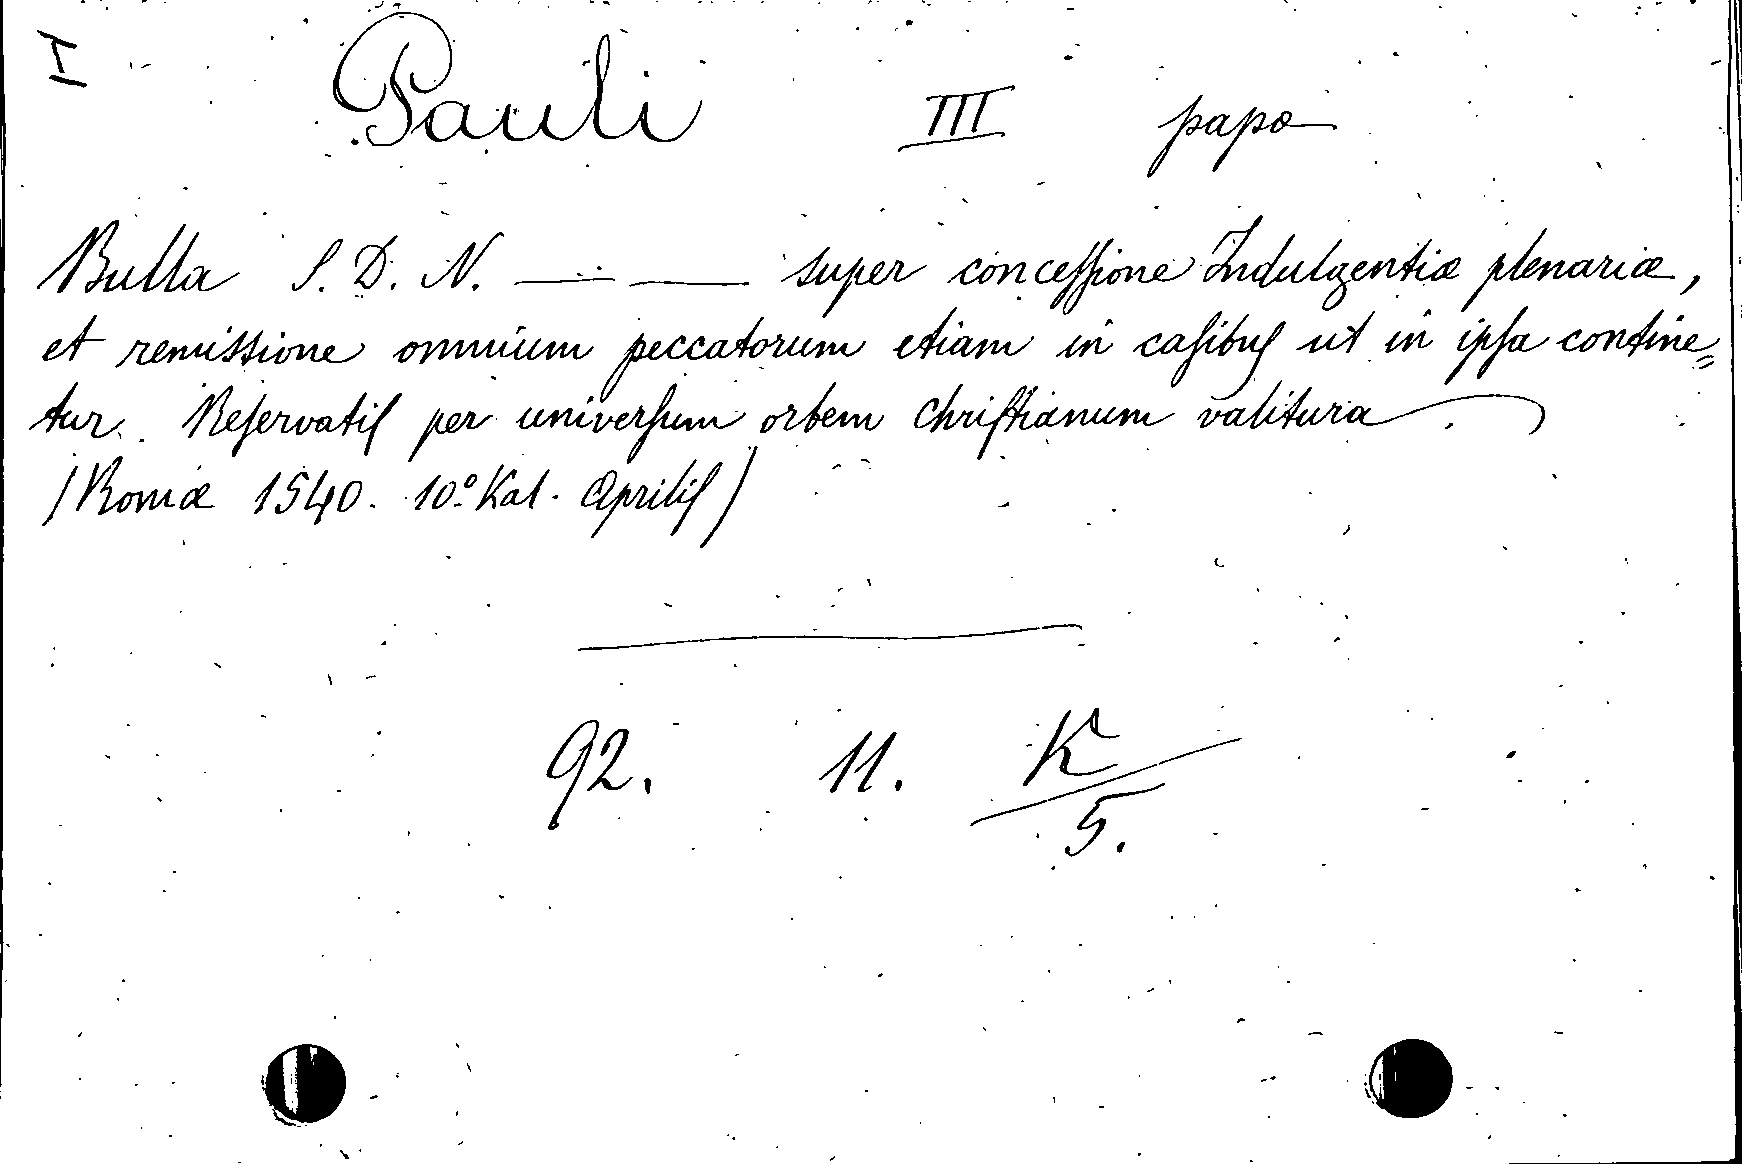 I
Pauli III papæ
Bulla S. D. N. — — super conceſſione Indulgentiæ plenariæ,
et remissione omnium peccatorum etiam in caſibuſ ut in ipſa contine=
tur. Reſervatiſ per univerſum orbem chriſtianum valitura.
/Romæ 1540. 10º Kal. Apriliſ/
92. 11. K/5.